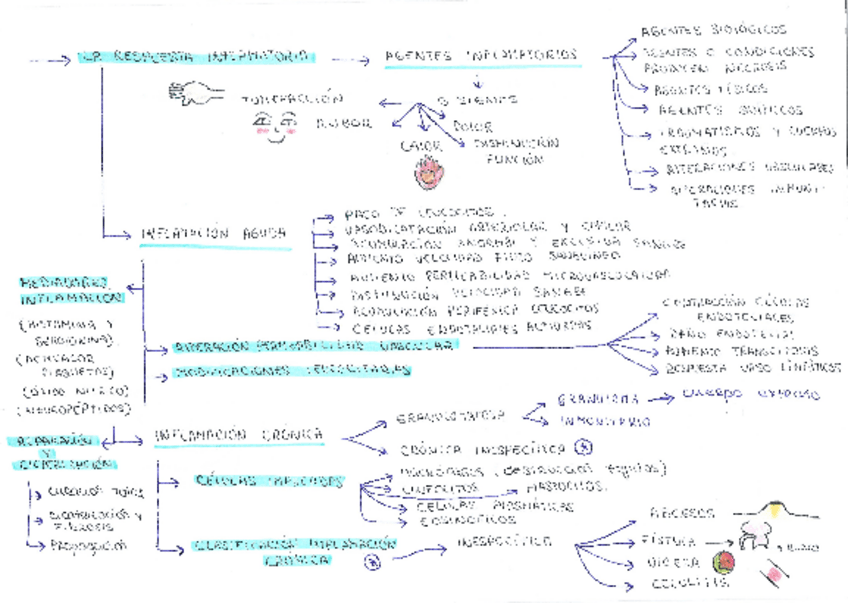 LA RESPUESTA INFLAMATORIA
AGENTES INFLAMATORIOS
AGENTES BIOLÓGICOS
AGENTES O CONDICIONES
PRODUCEN NECROSIS
AGENTES FÍSICOS
AGENTES QUÍMICOS
TRAUMATISMOS Y CUERPOS
EXTRAÑOS
ALTERACIONES VASCULARES
ALTERACIONES INMUNI-
TARIAS
5 SIGNOS
TUMEFACCIÓN
RUBOR
CALOR
DOLOR
DISMINUCIÓN
FUNCIÓN
INFLAMACIÓN AGUDA
PASO DE LEUCOCITOS
VASODILATACIÓN ARTERIOLAR Y CAPILAR
ACUMULACIÓN ANORMAL Y EXCESIVA SANGRE
AUMENTO VELOCIDAD FLUJO SANGUÍNEO
AUMENTO PERMEABILIDAD MICROVASCULATURA
DISMINUCIÓN VELOCIDAD SANGRE
ACUMULACIÓN PERIFÉRICA LEUCOCITOS
CÉLULAS ENDOTELIALES ACTIVADAS
MEDIADORES
INFLAMACIÓN
(HISTAMINA Y
(ACTIVADOR
PLAQUETAS)
(ÓXIDO NÍTRICO)
(NEUROPÉPTIDOS)
ALTERACIÓN PERMEABILIDAD VASCULAR
CONTRACCIÓN CÉLULAS
ENDOTELIALES
DAÑO ENDOTELIAL
AUMENTO TRANSCITOSIS
RESPUESTA VASO LINFÁTICOS
MODIFICACIONES LEUCOCITARIAS
INFLAMACIÓN CRÓNICA
GRANULOMATOSA
GRANULOMA
CUERPO EXTRAÑO
INMUNITARIO
CRÓNICA INESPECÍFICA *
REPARACIÓN
Y
CICATRIZACIÓN
CICATRIZACIÓN Y
FIBROSIS
Propagación
CÉLULAS IMPLICADAS
MACRÓFAGOS (DESTRUCCIÓN tejidos)
LINFOCITOS
MASTOCITOS
CÉLULAS PLASMÁTICAS
EOSINÓFILOS
CLASIFICACIÓN INFLAMACIÓN
CRÓNICA *
INESPECÍFICA
ABCESOS
FÍSTULA
ÚLCERA
CELULITIS